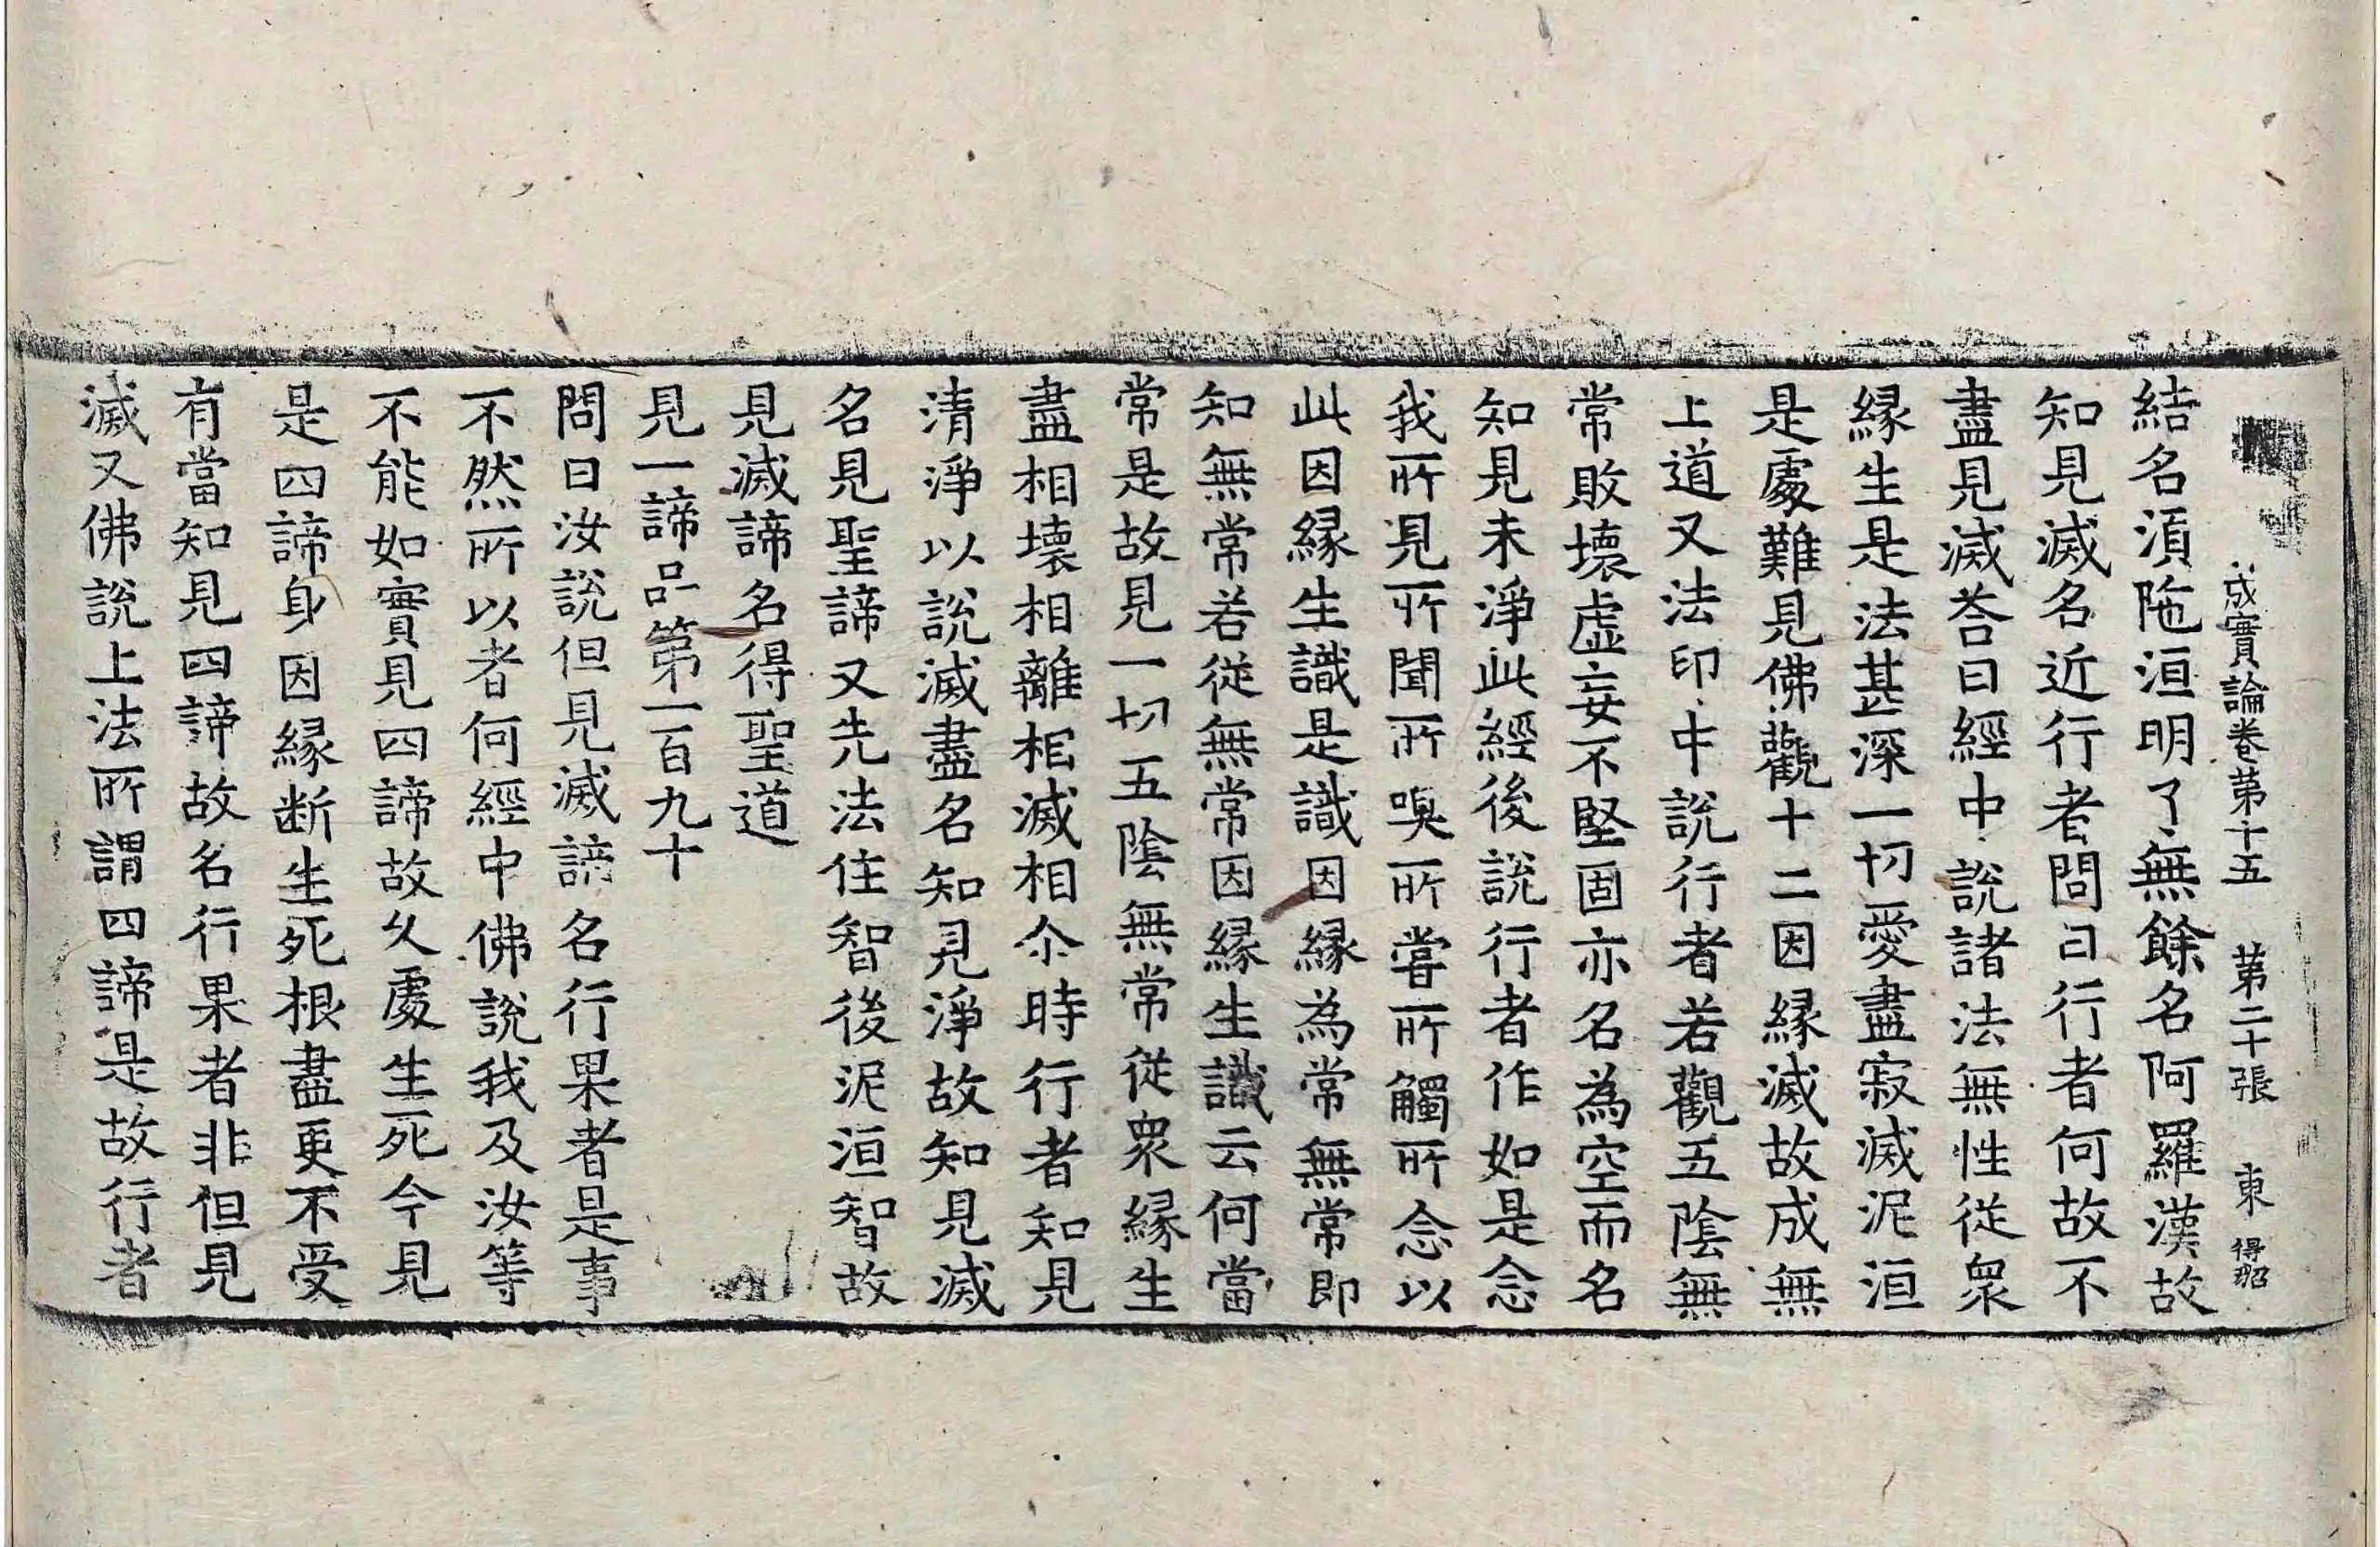 成實論卷第十五 第二十張 東 得昭
結名湏陁洹明了無餘名阿羅漢故
知見滅名近行者問曰行者何故不
盡見滅荅曰經中說諸法無性從衆
縁生是法甚深一切愛盡寂滅泥洹
是處難見佛觀十二因縁滅故成無
上道又法印中說行者若觀五陰無
常敗壞虛妄不堅固亦名為空而名
知見未淨此經後說行者作如是念
我所見所聞所嗅所甞所觸所念以
此因縁生識是識因縁為常無常即
知無常若從無常因縁生識云何當
常是故見一切五陰無常從衆縁生
盡相壞相離相滅相尒時行者知見
清淨以說滅盡名知見淨故知見滅
名見聖諦又先法住智後泥洹智故
見滅諦名得聖道
見一諦品第一百九十
問曰汝說但見滅諦名行果者是事
不然所以者何經中佛說我及汝等
不能如實見四諦故久處生死今見
是四諦身因縁断生死根盡更不受
有當知見四諦故名行果者非但見
滅又佛說上法所謂四諦是故行者